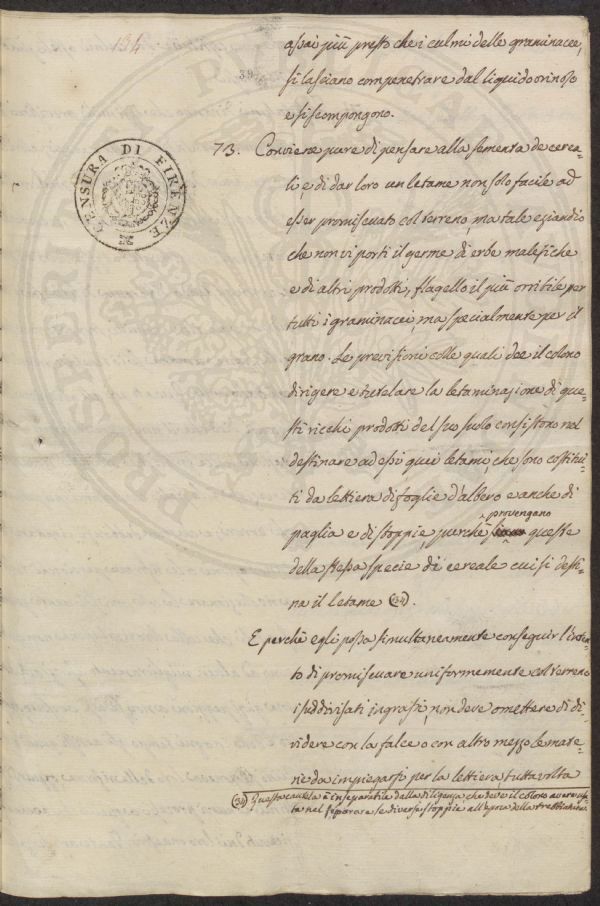 134
39
assai più presto che i culmi delle graminacee,
si lasciano compenetrare dal liquido orinoso
e si scompongono.
CENSURA DI FIRENZE
73. Conviene pure di pensare alla sementa de cerea=
li, e di dar loro un letame non solo facile ad
esser promiscuato col terreno, ma tale eziandio
che non vi porti il germe di erbe malefiche
e di altri prodotti, flagello il più orribile per
tutti i graminacei ma specialmente per il
grano. Le previsioni colle quali dee il colono
dirigere e tutelare la letaminazione di que=
sti ricchi prodotti del suo suolo consistono nel
destinare ad essi quei letami, che sono costitui=
ti da lettiera di foglie d'albero e anche di
provengano
paglia e di stoppie, purchè queste
della stessa specie di cereale cui si desti=
na il letame (34).
E perchè egli possa simultaneamente conseguir l'inten=
to di promiscuare uniformemente col terreno
i suddivisati ingrassi, non deve omettere di di=
videre con la falce o con altro mezzo le mate=
rie da impiegarsi per la lettiera tuttavolta
(34) Questa cautela è inseparabile dalla diligenza, che deve il colono avere usa=
ta nel separare le diverse stoppie all'epoca della trebbiatura.